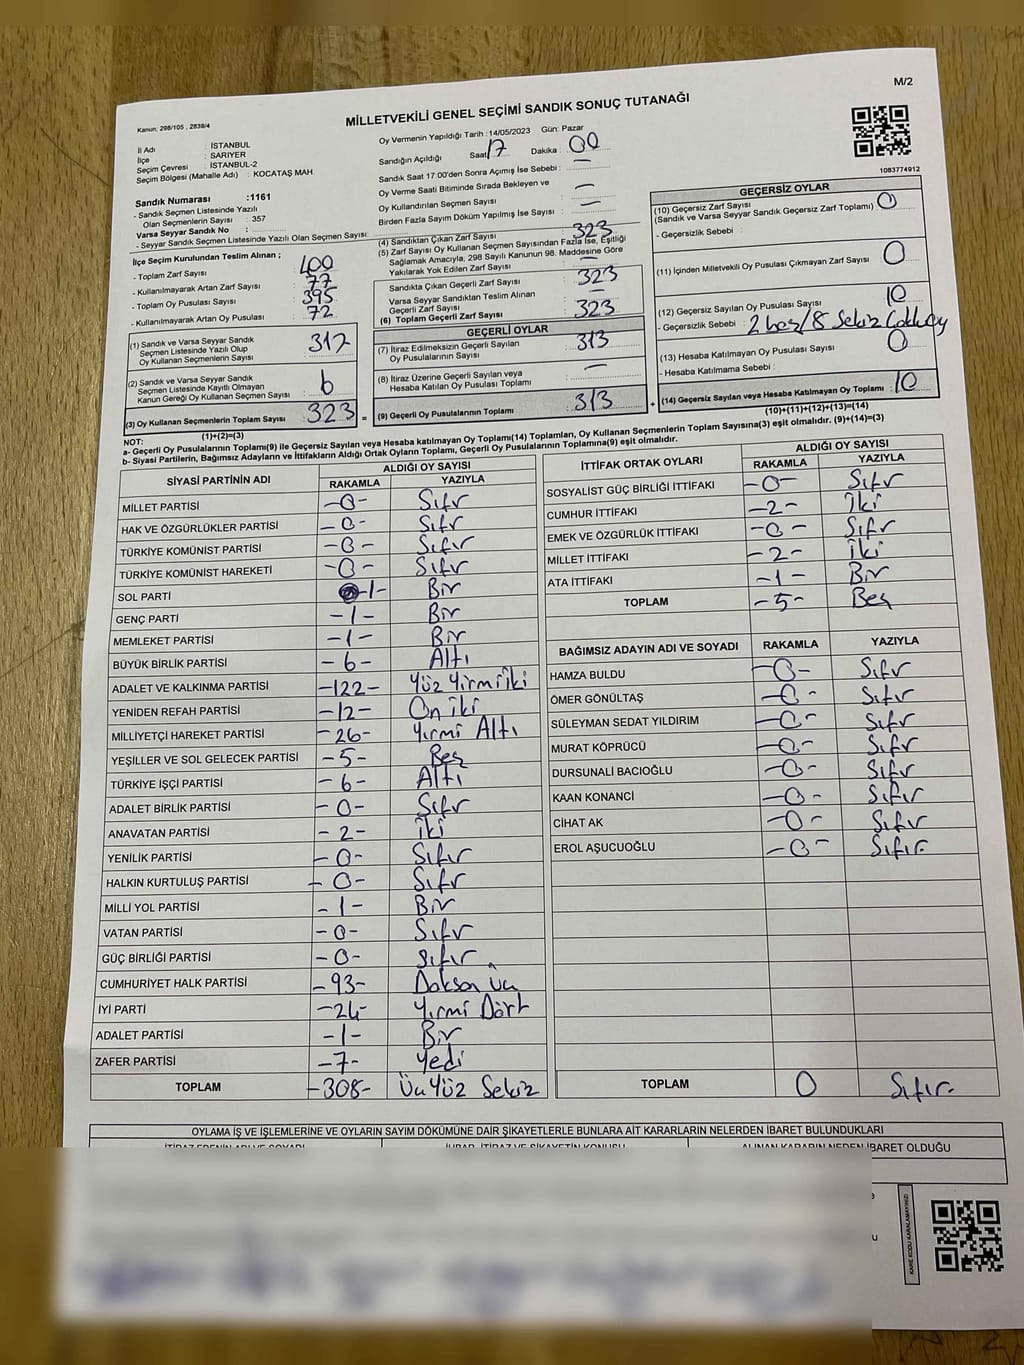 M/2
MİLLETVEKİLİ GENEL SEÇİMİ SANDIK SONUÇ TUTANAĞI
Kanun: 298/105 , 2839/4
İl Adı : İSTANBUL
İlçe : SARIYER
Seçim Çevresi : İSTANBUL-2
Seçim Bölgesi (Mahalle Adı) : KOCATAŞ MAH
Sandık Numarası :1161
- Sandık Seçmen Listesinde Yazılı
Olan Seçmenlerin Sayısı : 357
Varsa Seyyar Sandık No :
- Seyyar Sandık Seçmen Listesinde Yazılı Olan Seçmen Sayısı:
İlçe Seçim Kurulundan Teslim Alınan ;
- Toplam Zarf Sayısı : 400
- Kullanılmayarak Artan Zarf Sayısı : 77
- Toplam Oy Pusulası Sayısı : 395
- Kullanılmayarak Artan Oy Pusulası : 72
(1) Sandık ve Varsa Seyyar Sandık
Seçmen Listesinde Yazılı Olup
Oy Kullanan Seçmenlerin Sayısı : 317
(2) Sandık ve Varsa Seyyar Sandık
Seçmen Listesinde Kayıtlı Olmayan
Kanun Gereği Oy Kullanan Seçmen Sayısı : 6
(3) Oy Kullanan Seçmenlerin Toplam Sayısı : 323 =
(1)+(2)=(3)
Oy Vermenin Yapıldığı Tarih :14/05/2023 Gün: Pazar
Sandığın Açıldığı Saat: 17 Dakika : 00
Sandık Saat 17:00'den Sonra Açımış İse Sebebi : —
Oy Verme Saati Bitiminde Sırada Bekleyen ve
Oy Kullandırılan Seçmen Sayısı : —
Birden Fazla Sayım Döküm Yapılmış İse Sayısı : —
(4) Sandıktan Çıkan Zarf Sayısı : 323
(5) Zarf Sayısı Oy Kullanan Seçmen Sayısından Fazla İse, Eşitliği
Sağlamak Amacıyla, 298 Sayılı Kanunun 98. Maddesine Göre
Yakılarak Yok Edilen Zarf Sayısı : —
Sandıkta Çıkan Geçerli Zarf Sayısı : 323
Varsa Seyyar Sandıktan Teslim Alınan
Geçerli Zarf Sayısı : —
(6) Toplam Geçerli Zarf Sayısı : 323
GEÇERLİ OYLAR
(7) İtiraz Edilmeksizin Geçerli Sayılan
Oy Pusulalarının Sayısı : 313
(8) İtiraz Üzerine Geçerli Sayılan veya
Hesaba Katılan Oy Pusulası Toplamı : —
(9) Geçerli Oy Pusulalarının Toplamı : 313 +
1083774912
GEÇERSİZ OYLAR
(10) Geçersiz Zarf Sayısı
(Sandık ve Varsa Seyyar Sandık Geçersiz Zarf Toplamı) : 0
- Geçersizlik Sebebi :
(11) İçinden Milletvekili Oy Pusulası Çıkmayan Zarf Sayısı : 0
(12) Geçersiz Sayılan Oy Pusulası Sayısı : 10
- Geçersizlik Sebebi : 2 boş/8 Sekiz Çoklu oy
(13) Hesaba Katılmayan Oy Pusulası Sayısı : 0
- Hesaba Katılmama Sebebi :
(14) Geçersiz Sayılan veya Hesaba Katılmayan Oy Toplamı : 10
(10)+(11)+(12)+(13)=(14)
NOT:
a- Geçerli Oy Pusulalarının Toplamı(9) ile Geçersiz Sayılan veya Hesaba katılmayan Oy Toplamı(14) Toplamları, Oy Kullanan Seçmenlerin Toplam Sayısına(3) eşit olmalıdır. (9)+(14)=(3)
b- Siyasi Partilerin, Bağımsız Adayların ve İttifakların Aldığı Ortak Oyların Toplamı, Geçerli Oy Pusulalarının Toplamına(9) eşit olmalıdır.
SİYASİ PARTİNİN ADI ALDIĞI OY SAYISI
RAKAMLA YAZIYLA
MİLLET PARTİSİ -0- Sıfır
HAK VE ÖZGÜRLÜKLER PARTİSİ -0- Sıfır
TÜRKİYE KOMÜNİST PARTİSİ -0- Sıfır
TÜRKİYE KOMÜNİST HAREKETİ -0- Sıfır
SOL PARTİ -1- Bir
GENÇ PARTİ -1- Bir
MEMLEKET PARTİSİ -1- Bir
BÜYÜK BİRLİK PARTİSİ -6- Altı
ADALET VE KALKINMA PARTİSİ -122- Yüz Yirmi iki
YENİDEN REFAH PARTİSİ -12- On iki
MİLLİYETÇİ HAREKET PARTİSİ -26- Yirmi Altı
YEŞİLLER VE SOL GELECEK PARTİSİ -5- Beş
TÜRKİYE İŞÇİ PARTİSİ -6- Altı
ADALET BİRLİK PARTİSİ -0- Sıfır
ANAVATAN PARTİSİ -2- iki
YENİLİK PARTİSİ -0- Sıfır
HALKIN KURTULUŞ PARTİSİ -0- Sıfır
MİLLİ YOL PARTİSİ -1- Bir
VATAN PARTİSİ -0- Sıfır
GÜÇ BİRLİĞİ PARTİSİ -0- Sıfır
CUMHURİYET HALK PARTİSİ -93- Doksan üç
İYİ PARTİ -24- Yirmi Dört
ADALET PARTİSİ -1- Bir
ZAFER PARTİSİ -7- Yedi
TOPLAM -308- Üç Yüz Sekiz
İTTİFAK ORTAK OYLARI ALDIĞI OY SAYISI
RAKAMLA YAZIYLA
SOSYALİST GÜÇ BİRLİĞİ İTTİFAKI -0- Sıfır
CUMHUR İTTİFAKI -2- İki
EMEK VE ÖZGÜRLÜK İTTİFAKI -0- Sıfır
MİLLET İTTİFAKI -2- iki
ATA İTTİFAKI -1- Bir
TOPLAM -5- Beş
BAĞIMSIZ ADAYIN ADI VE SOYADI RAKAMLA YAZIYLA
HAMZA BULDU -0- Sıfır
ÖMER GÖNÜLTAŞ -0- Sıfır
SÜLEYMAN SEDAT YILDIRIM -0- Sıfır
MURAT KÖPRÜCÜ -0- Sıfır
DURSUNALİ BACIOĞLU -0- Sıfır
KAAN KONANCİ -0- Sıfır
CİHAT AK -0- Sıfır
EROL AŞUCUOĞLU -0- Sıfır
TOPLAM 0 Sıfır
OYLAMA İŞ VE İŞLEMLERİNE VE OYLARIN SAYIM DÖKÜMÜNE DAİR ŞİKAYETLERLE BUNLARA AİT KARARLARIN NELERDEN İBARET BULUNDUKLARI
İTİRAZ EDENİN ADI VE SOYADI İHBAR, İTİRAZ VE ŞİKAYETİN KONUSU ALINAN KARARIN NEDEN İBARET OLDUĞU
KARE KODU KARALAMAYINIZ!